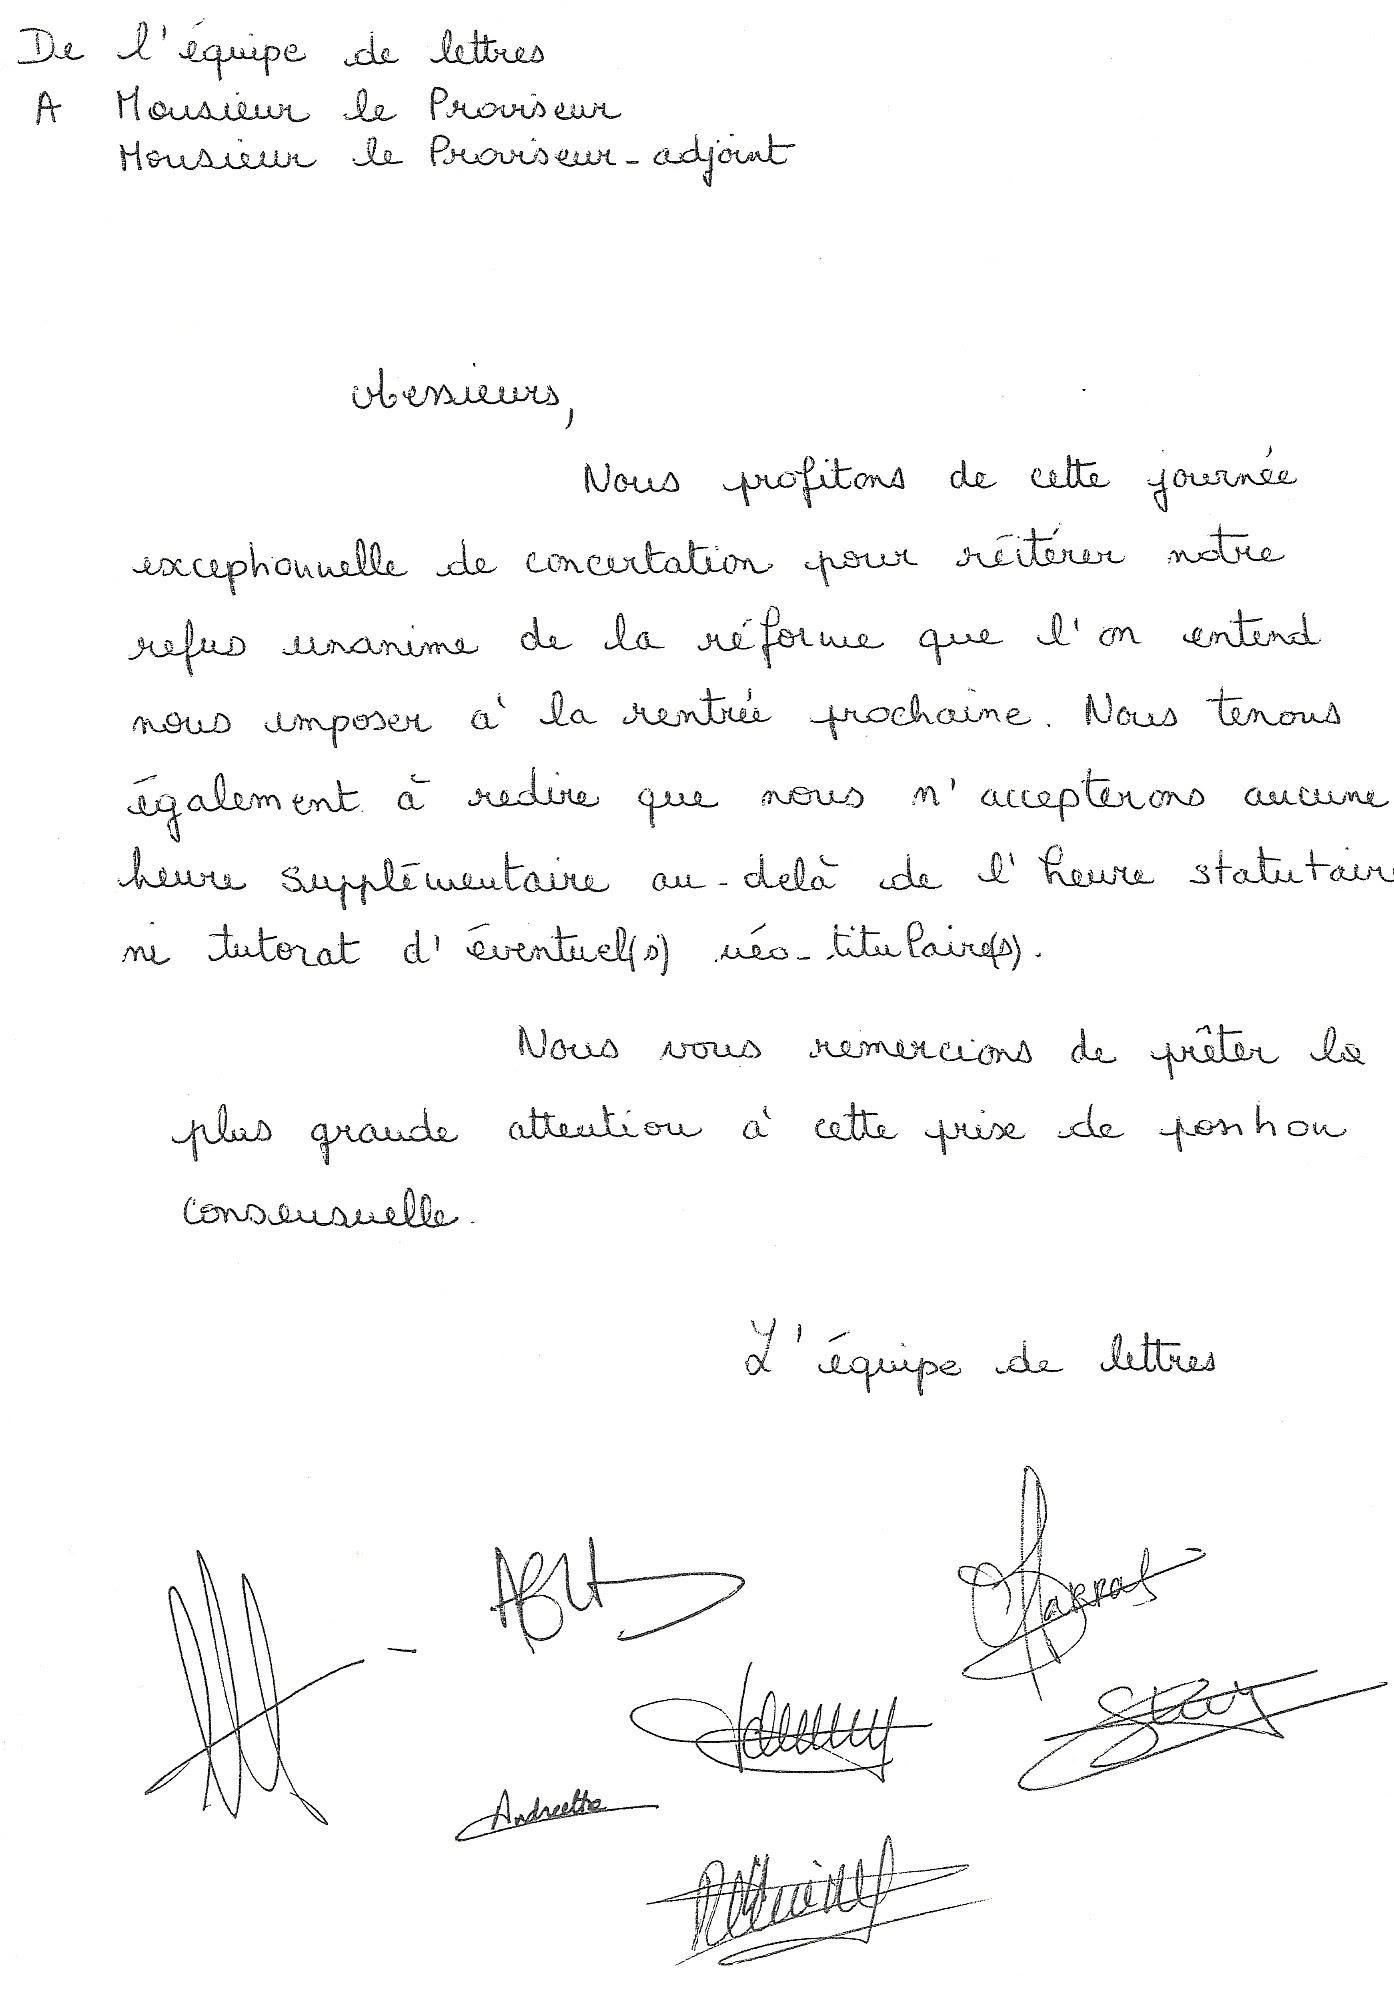 De l'équipe de lettres
A Monsieur le Proviseur
Monsieur le Proviseur-adjoint
Messieurs,
Nous profitons de cette journée
exceptionnelle de concertation pour réitérer notre
refus unanime de la réforme que l'on entend
nous imposer à la rentrée prochaine. Nous tenons
également à redire que nous n'accepterons aucune
heure supplémentaire au-delà de l'heure statutaire
ni tutorat d'éventuel(s) néo-titulaire(s).
Nous vous remercions de prêter la
plus grande attention à cette prise de position
consensuelle.
L'équipe de lettres